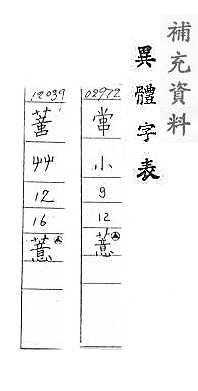 補充資料
異體字表
02972
小
9
12
薏
12039
艸
12
16
薏